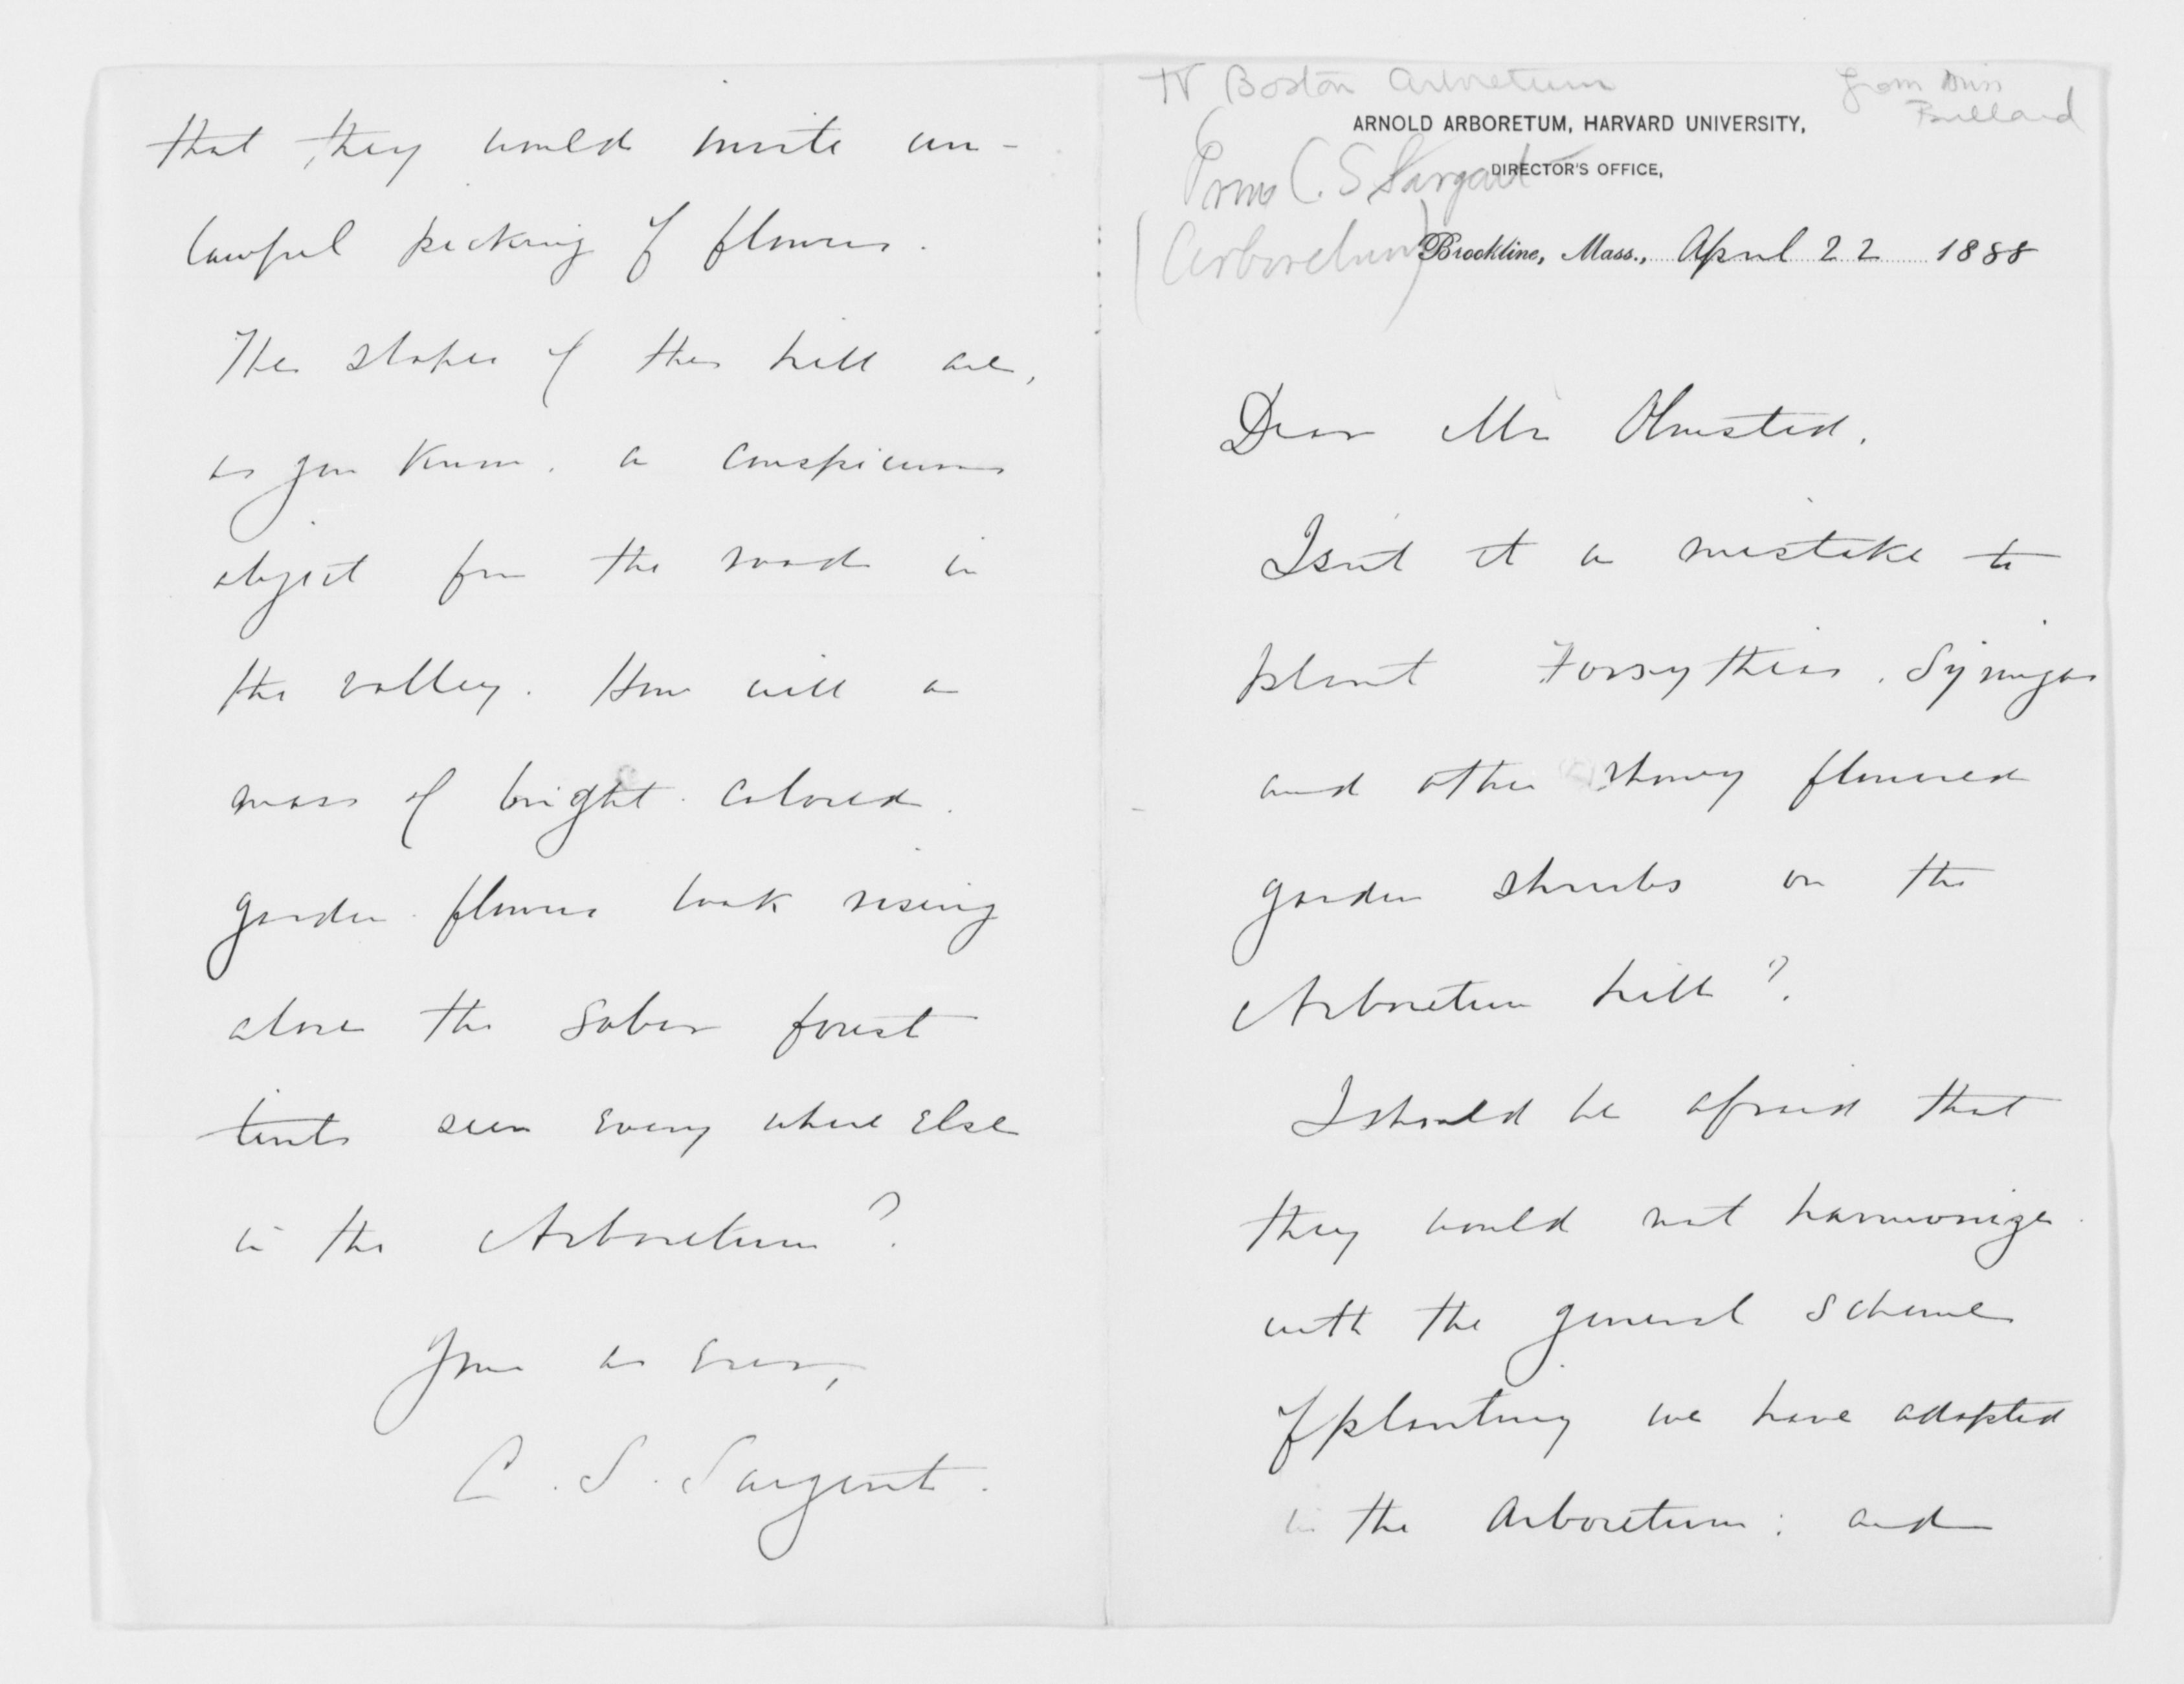 Boston Arboretum
from Miss
Bullard
ARNOLD ARBORETUM, HARVARD UNIVERSITY,
DIRECTOR'S OFFICE,
From C. S. Sargent
(Arboretum)
Brookline, Mass., April 22 1888
Dear Mr Olmsted.
Isn't it a mistake to
plant Forsythias, Syringas
and other showy flowered
garden shrubs on the
Arboretum hill?
I should be afraid that
they would not harmonize
with the general scheme
of planting we have adopted
in the Arboretum; and
that they would invite un-
lawful picking of flowers.
The slopes of the hill are,
as you know, a conspicuous
object from the road in
the valley. How will a
mass of bright colored
garden flowers look rising
above the sober forest
tints seen every where else
in the Arboretum?
Yours as ever,
C. S. Sargent.